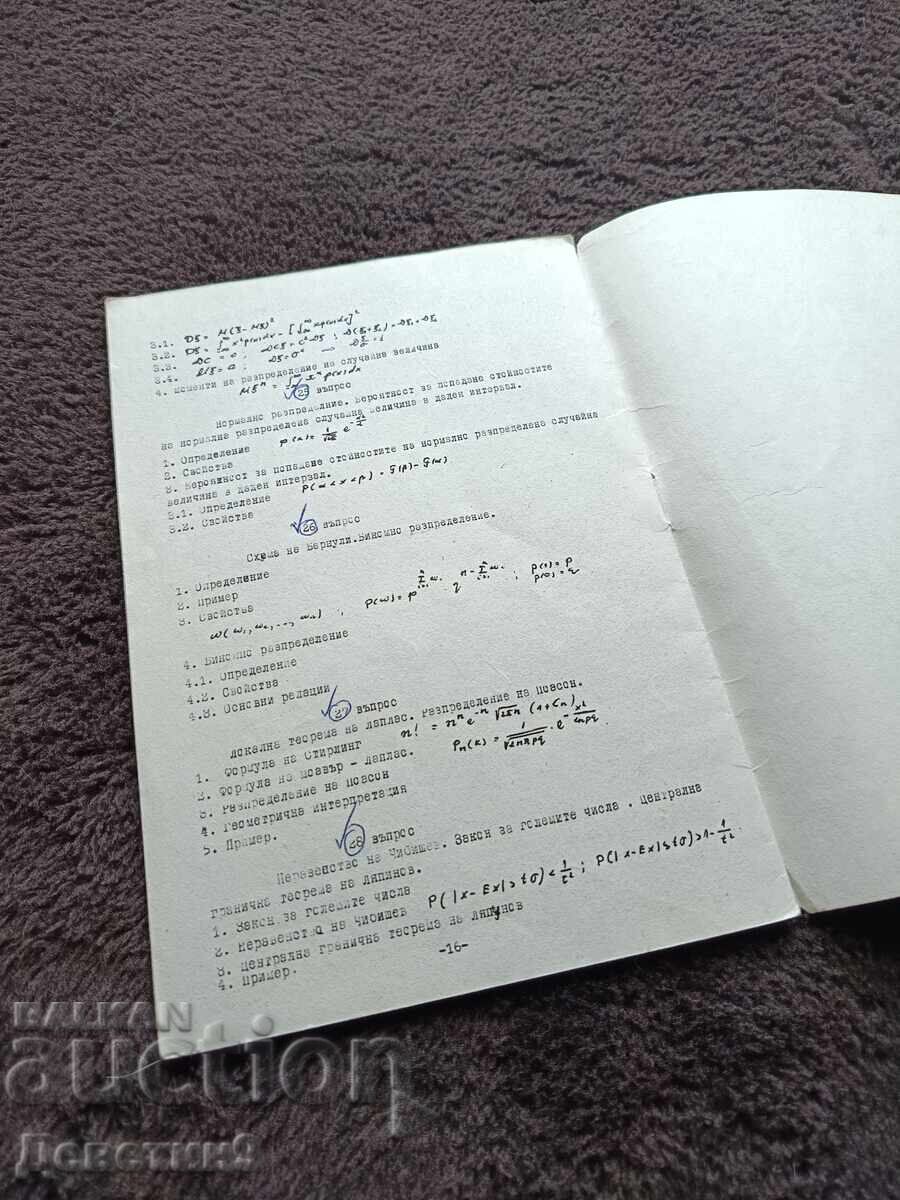 3.1. Dξ = M(ξ - Mξ)²
3.2. Dξ = ∫x²p(x)dx - [∫xp(x)dx]²
3.3. DC = 0; DCξ = C²Dξ; D(ξ₁+ξ₂) = Dξ₁ + Dξ₂
3.4. Mξ = 0; Dξ = σ²
4. Моменти на разпределение на случайна величина
25 въпрос
Нормално разпределние. Вероятност за попадане стойностите
на нормално разпределена случайна величина в даден интервал.
1. Определение
2. Свойства
3. Вероятност за попадане стойностите на нормално разпределена случайна
величина в даден интервал.
3.1. Определение P(α < x < β) =
3.2. Свойства
26 въпрос
Схема не Бернули.Биномно разпределение.
1. Определение
2. Пример
3. Свойства
ω(ω₁, ω₂, ..., ωₙ) ; P(ω) = p q ; p(1) = p
p(0) = q
4. Биномно разпределение
4.1. Определение
4.2. Свойства
4.3. Основни релации
27 въпрос
Локална теорема на Лаплас. Разпределение на Поасон.
1. Формула на Стирлинг n! = nⁿ e⁻ⁿ √2πn (1+εₙ)
2. Формула на Моавър - Лаплас. Pₙ(k) = 1/√2πnpq · e^-x²/2npq
3. Разпределение на Поасон
4. Геометрична интерпретация
5. Пример.
28 въпрос
Неравенство на Чебишев. Закон за големите числа . Централна
гранична теорема на Ляпинов.
1. Закон за големите числа
2. Неравенство на Чибишев P(|x-Ex| > tσ) < 1/t² ; P(|x-Ex| ≤ tσ) > 1 - 1/t²
3. Централна гранична теорема на Ляпунов
4. Пример.
-16-
BALKAN
auction
Деветик9